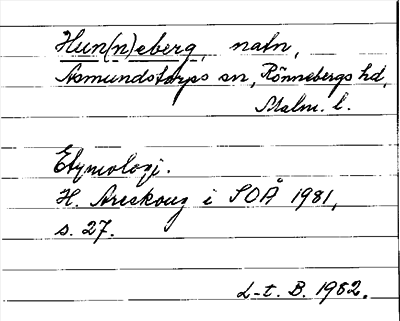 Hun(n)eberg, natn,
Asmundstorps sn, Rönnebergs hd,
Malm. l.
Etymologi.
H. Areskoug i SOÅ 1981,
s. 27.
L-t. B. 1982.